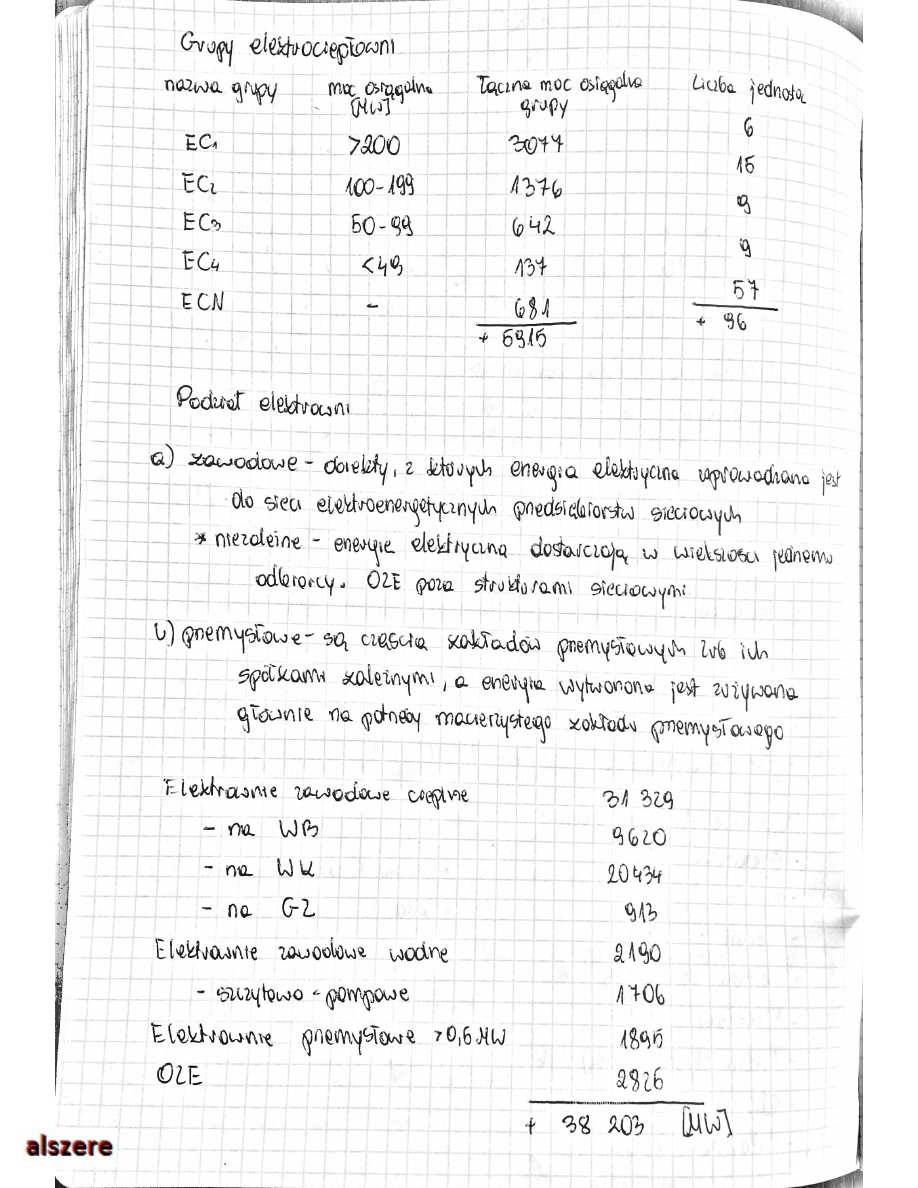 Grupy elektrociepłowni
nazwa grupy moc osiągalna [MW] Łączna moc osiągalna grupy Liczba jednostek
EC1 >200 3077 6
EC2 100-199 1376 15
EC3 50-99 642 9
EC4 <49 137 9
ECN - 681 57
+ 5915 + 96
Podział elektrowni
a) zawodowe - obiekty, z których energia elektryczna wprowadzana jest
do sieci elektroenergetycznych przedsiębiorstw sieciowych
* niezależne - energię elektryczną dostarczają w większości jednemu
odbiorcy. OZE poza strukturami sieciowymi
b) przemysłowe - są częścią zakładów przemysłowych lub ich
spółkami zależnymi, a energia wytworzona jest zużywana
głównie na potrzeby macierzystego zakładu przemysłowego
Elektrownie zawodowe cieplne 31 329
- na WB 9620
- na WK 20434
- na GZ 913
Elektrownie zawodowe wodne 2190
- szczytowo - pompowe 1706
Elektrownie przemysłowe >0,5 MW 1895
OZE 2826
+ 38 203 [MW]
alszere